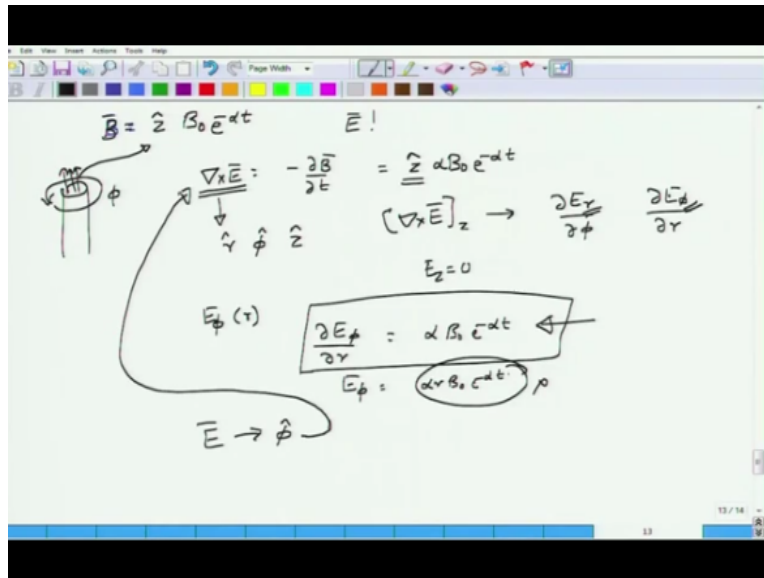 Edit View Insert Actions Tools Help
Page Width
B I
B̄ = ẑ B₀ e^{-αt} Ē !
φ
∇×Ē = -∂B̄/∂t = ẑ αB₀e^{-αt}
r̂ φ̂ ẑ [∇×Ē]_z → ∂E_r/∂φ ∂E_φ/∂r
E_z = 0
E_φ (r) ∂E_φ/∂r = α B₀ e^{-αt}
E_φ = αr B₀ e^{-αt}
Ē → φ̂
13 / 14
13